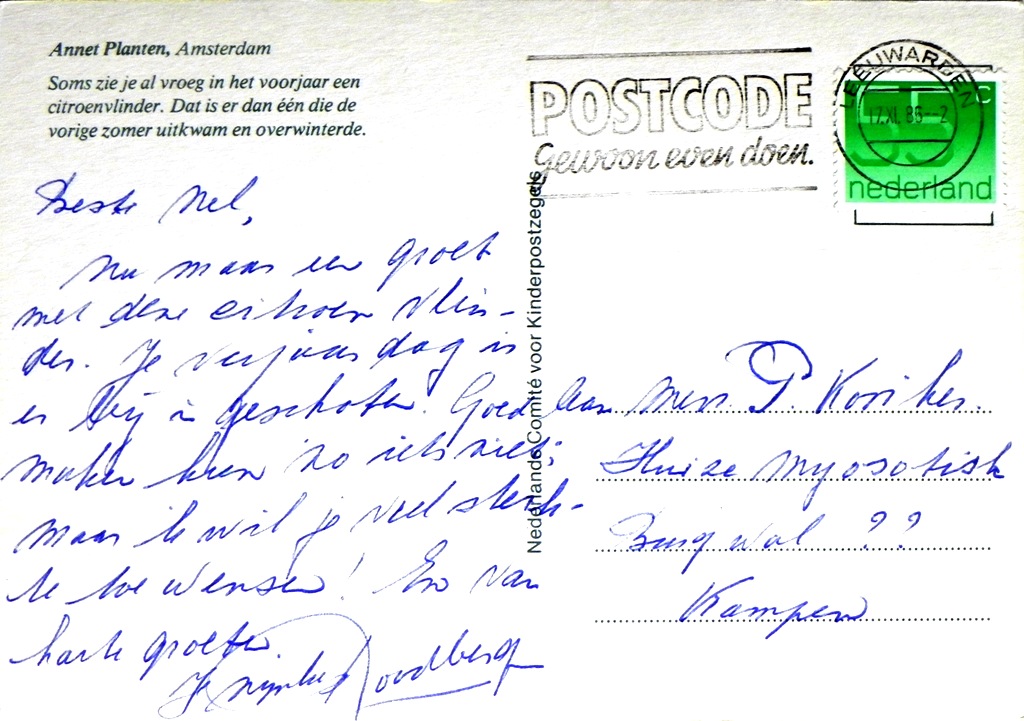 Annet Planten, Amsterdam
Soms zie je al vroeg in het voorjaar een
citroenvlinder. Dat is er dan één die de
vorige zomer uitkwam en overwinterde.
POSTCODE
gewoon even doen.
LEEUWARDEN
17.XI.86-2
55 c
nederland
Nederlands Comité voor Kinderpostzegels
Beste Nel,
Nu maar een groet
met deze citroen vlin-
der. Je verjaardag is
er bij in geschoten. Goed
maken kun zo iets niet;
maar ik wil je veel sterk-
te toe wensen! En van
harte groeten.
Roodberg
Aan Mevr. P. Kooiker.
Huize Myosotisk
Burgwal ??
Kampen